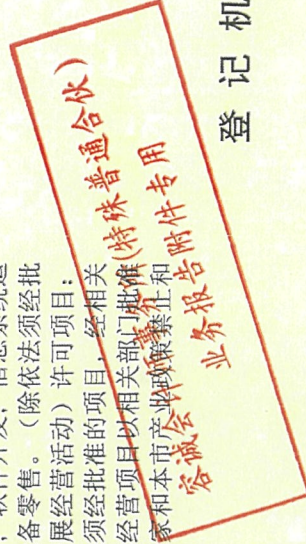 ，软件开发；信息系统运
备零售。（除依法须经批
展经营活动）许可项目：
须经批准的项目，经相关
经营项目以相关部门批准
家和本市产业政策禁止和
容诚会计师事务所(特殊普通合伙)
业务报告附件专用
登记机